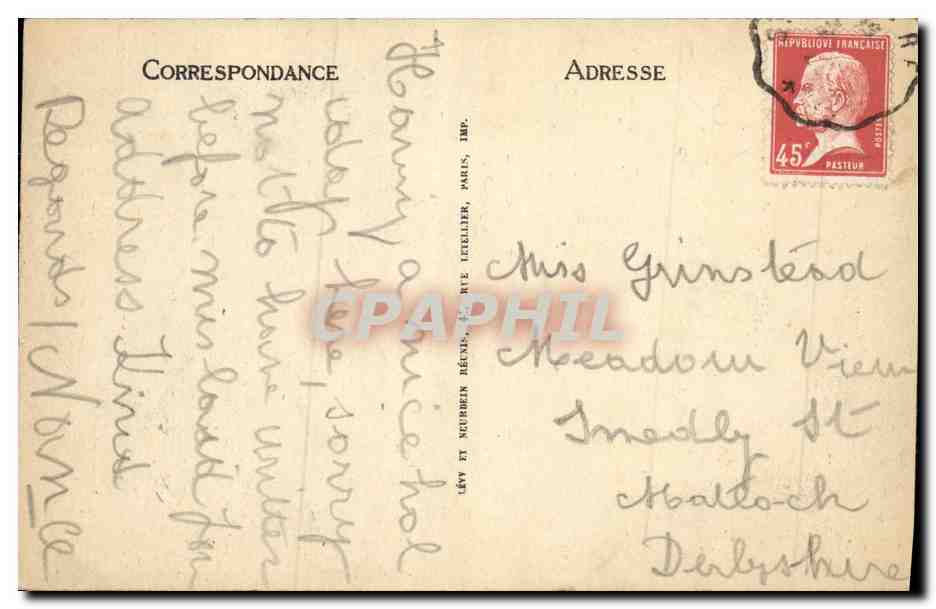 CORRESPONDANCE
Having a nice hol
iday here, sorry
not to have written
before mislaid your
address. Kind
Regards / Nance
LÉVY ET NEURDEIN RÉUNIS, 44, RUE LETELLIER, PARIS, IMP.
ADRESSE
RÉPUBLIQUE FRANÇAISE
45c
POSTES
PASTEUR
Miss Grinstead
Meadow View
Smedly St
Matlock
Derbyshire
CPAPHIL